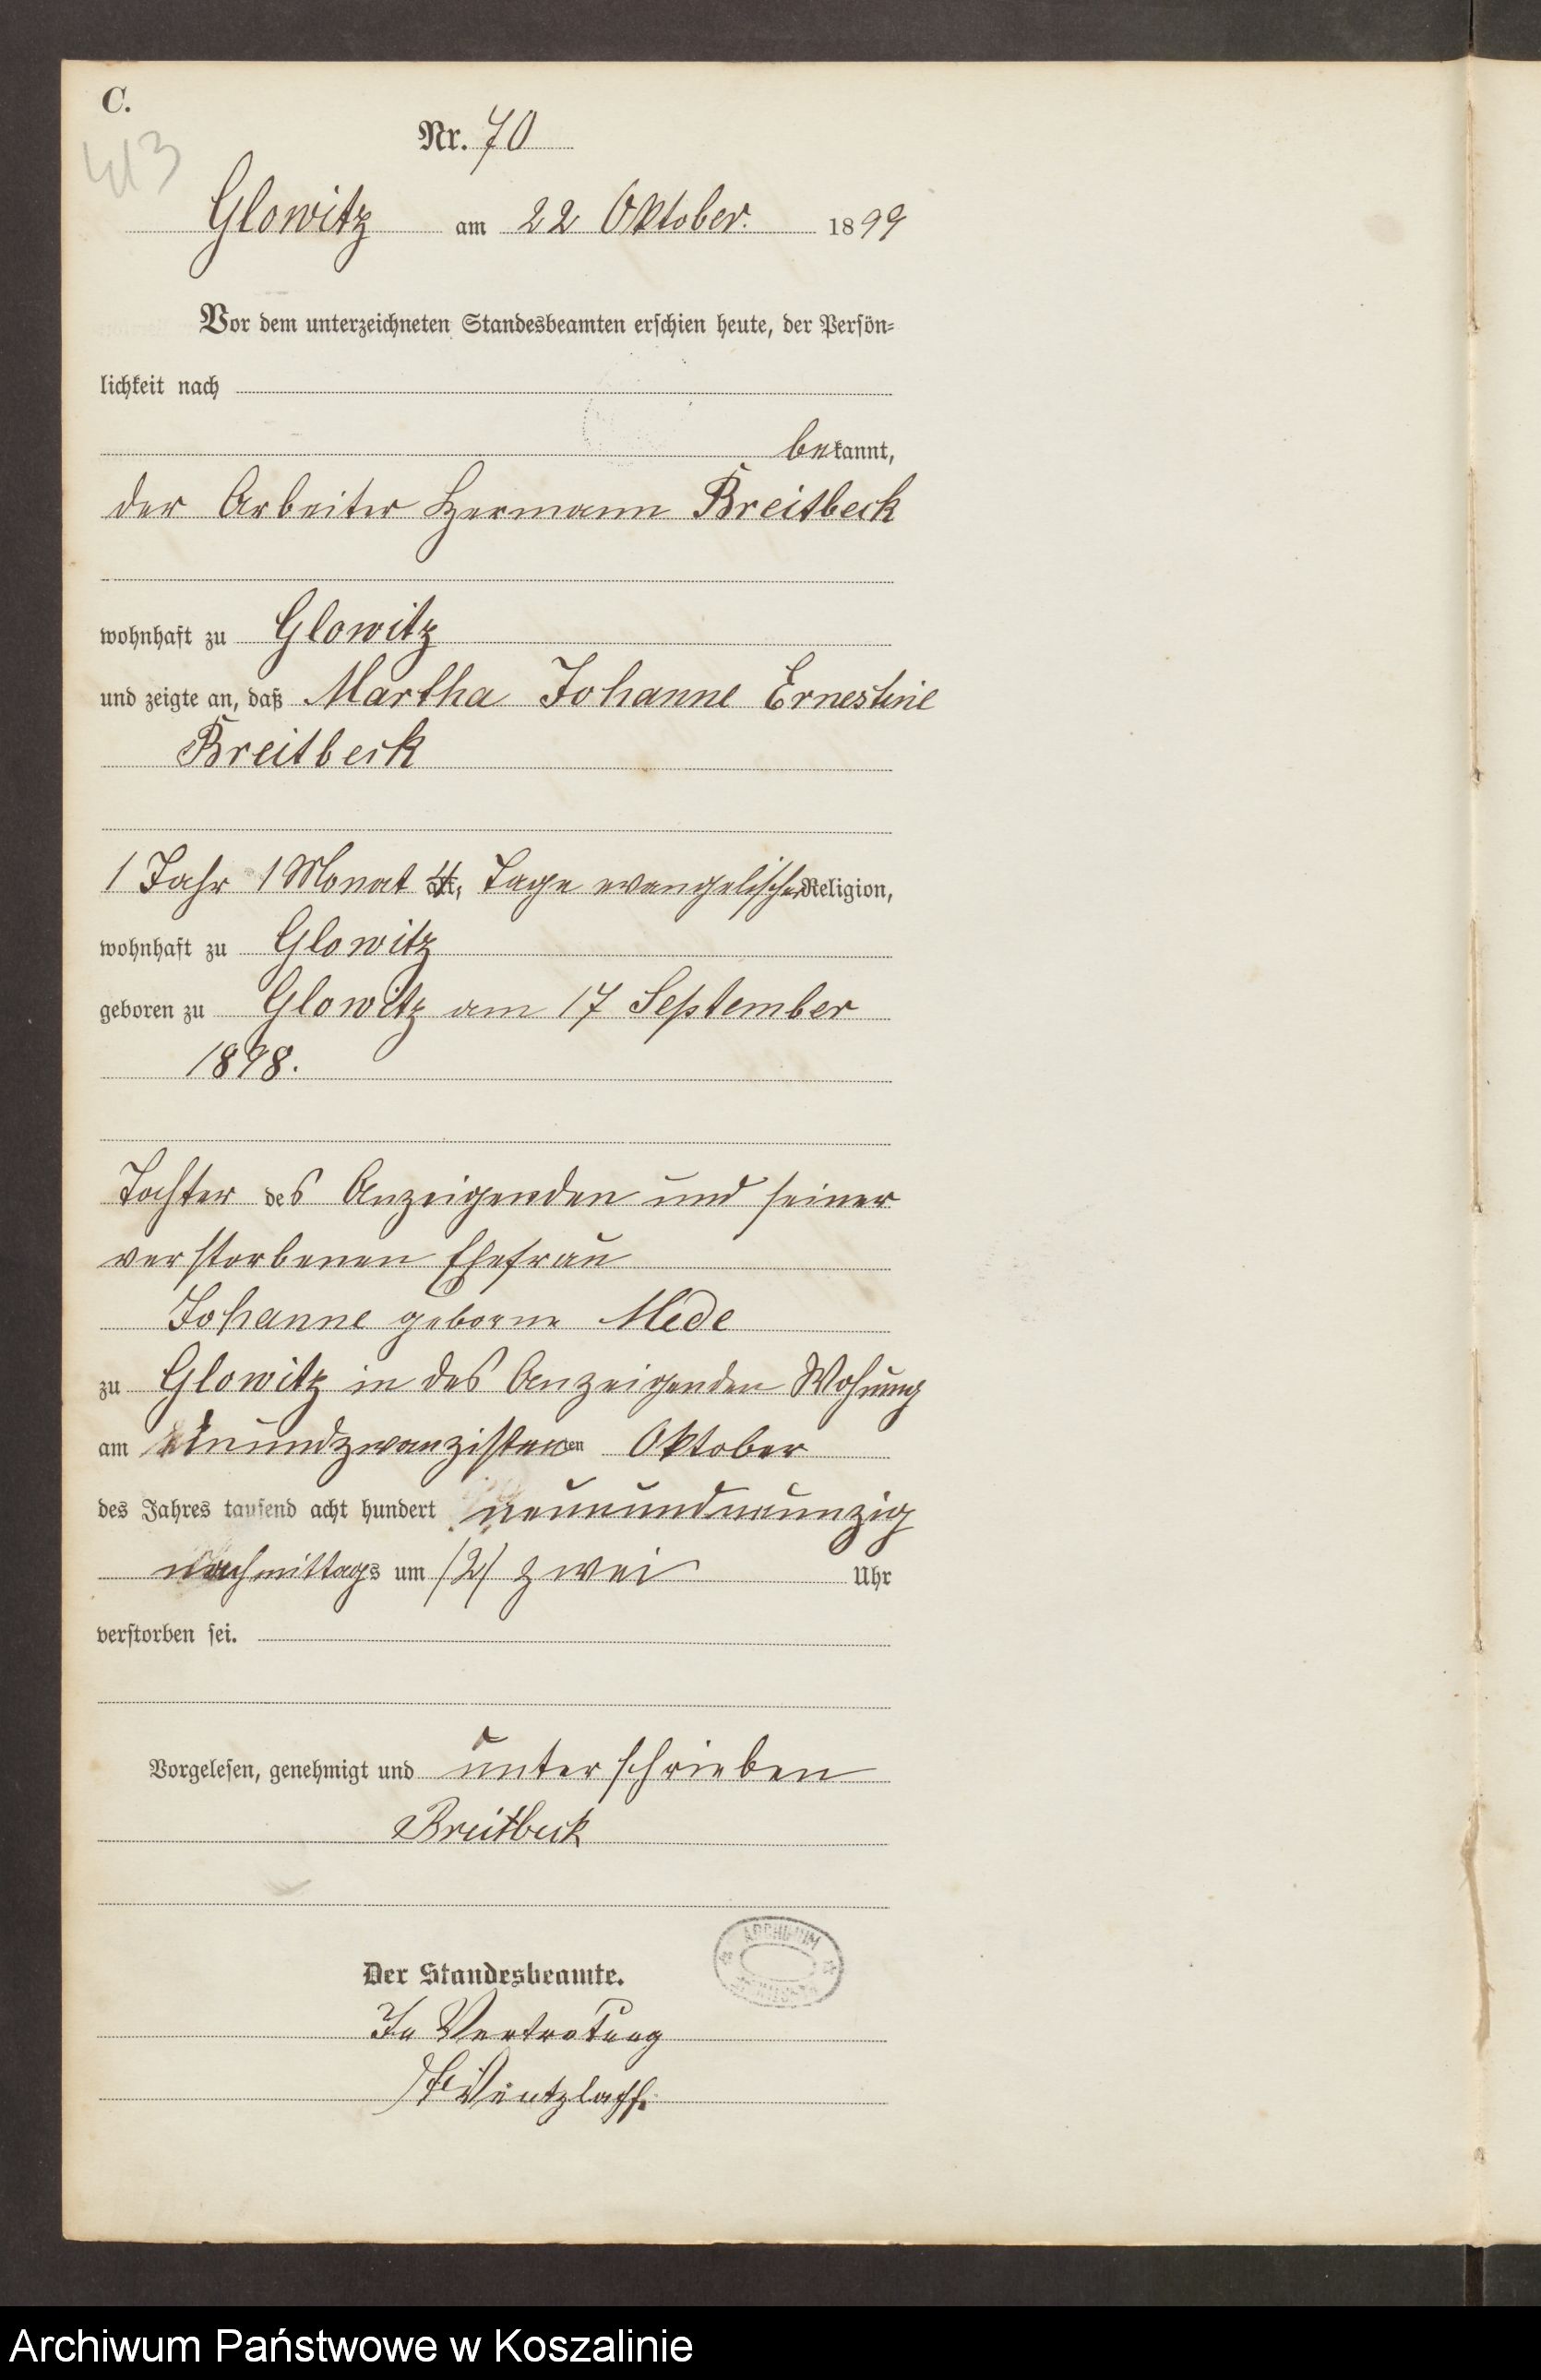 C.
413
Nr. 70
Glowitz am 22 Oktober. 1899
Vor dem unterzeichneten Standesbeamten erschien heute, der Persön-
lichkeit nach
bekannt,
der Arbeiter Hermann Breitbeck
wohnhaft zu Glowitz
und zeigte an, daß Martha Johanne Ernestine
Breitbeck
1 Jahr 1 Monat 4 alt, Tage evangelischer Religion,
wohnhaft zu Glowitz
geboren zu Glowitz am 17 September
1898.
Tochter des Anzeigenden und seiner
verstorbenen Ehefrau
Johanne geborne Mede
zu Glowitz in des Anzeigenden Wohnung
am einundzwanzigsten Oktober
des Jahres tausend acht hundert neunundneunzig
nachmittags um /2/ zwei Uhr
verstorben sei.
Vorgelesen, genehmigt und unterschrieben
Breitbeck
ARCHIWUM
Der Standesbeamte.
In Vertretung
Ventzlaff.
Archiwum Państwowe w Koszalinie